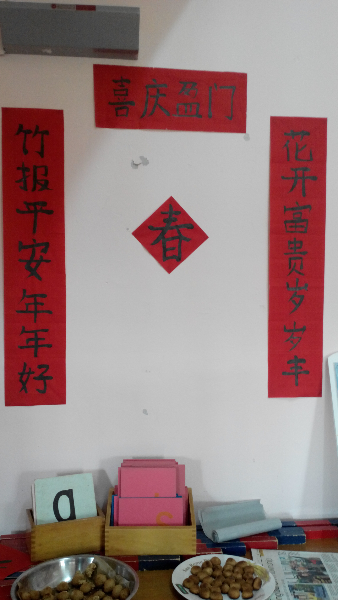 喜庆盈门
竹报平安年年好
春
花开富贵岁岁丰
a
s